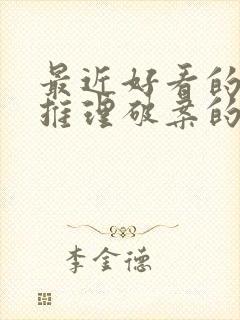 最近好看的
推理破案的
李金德